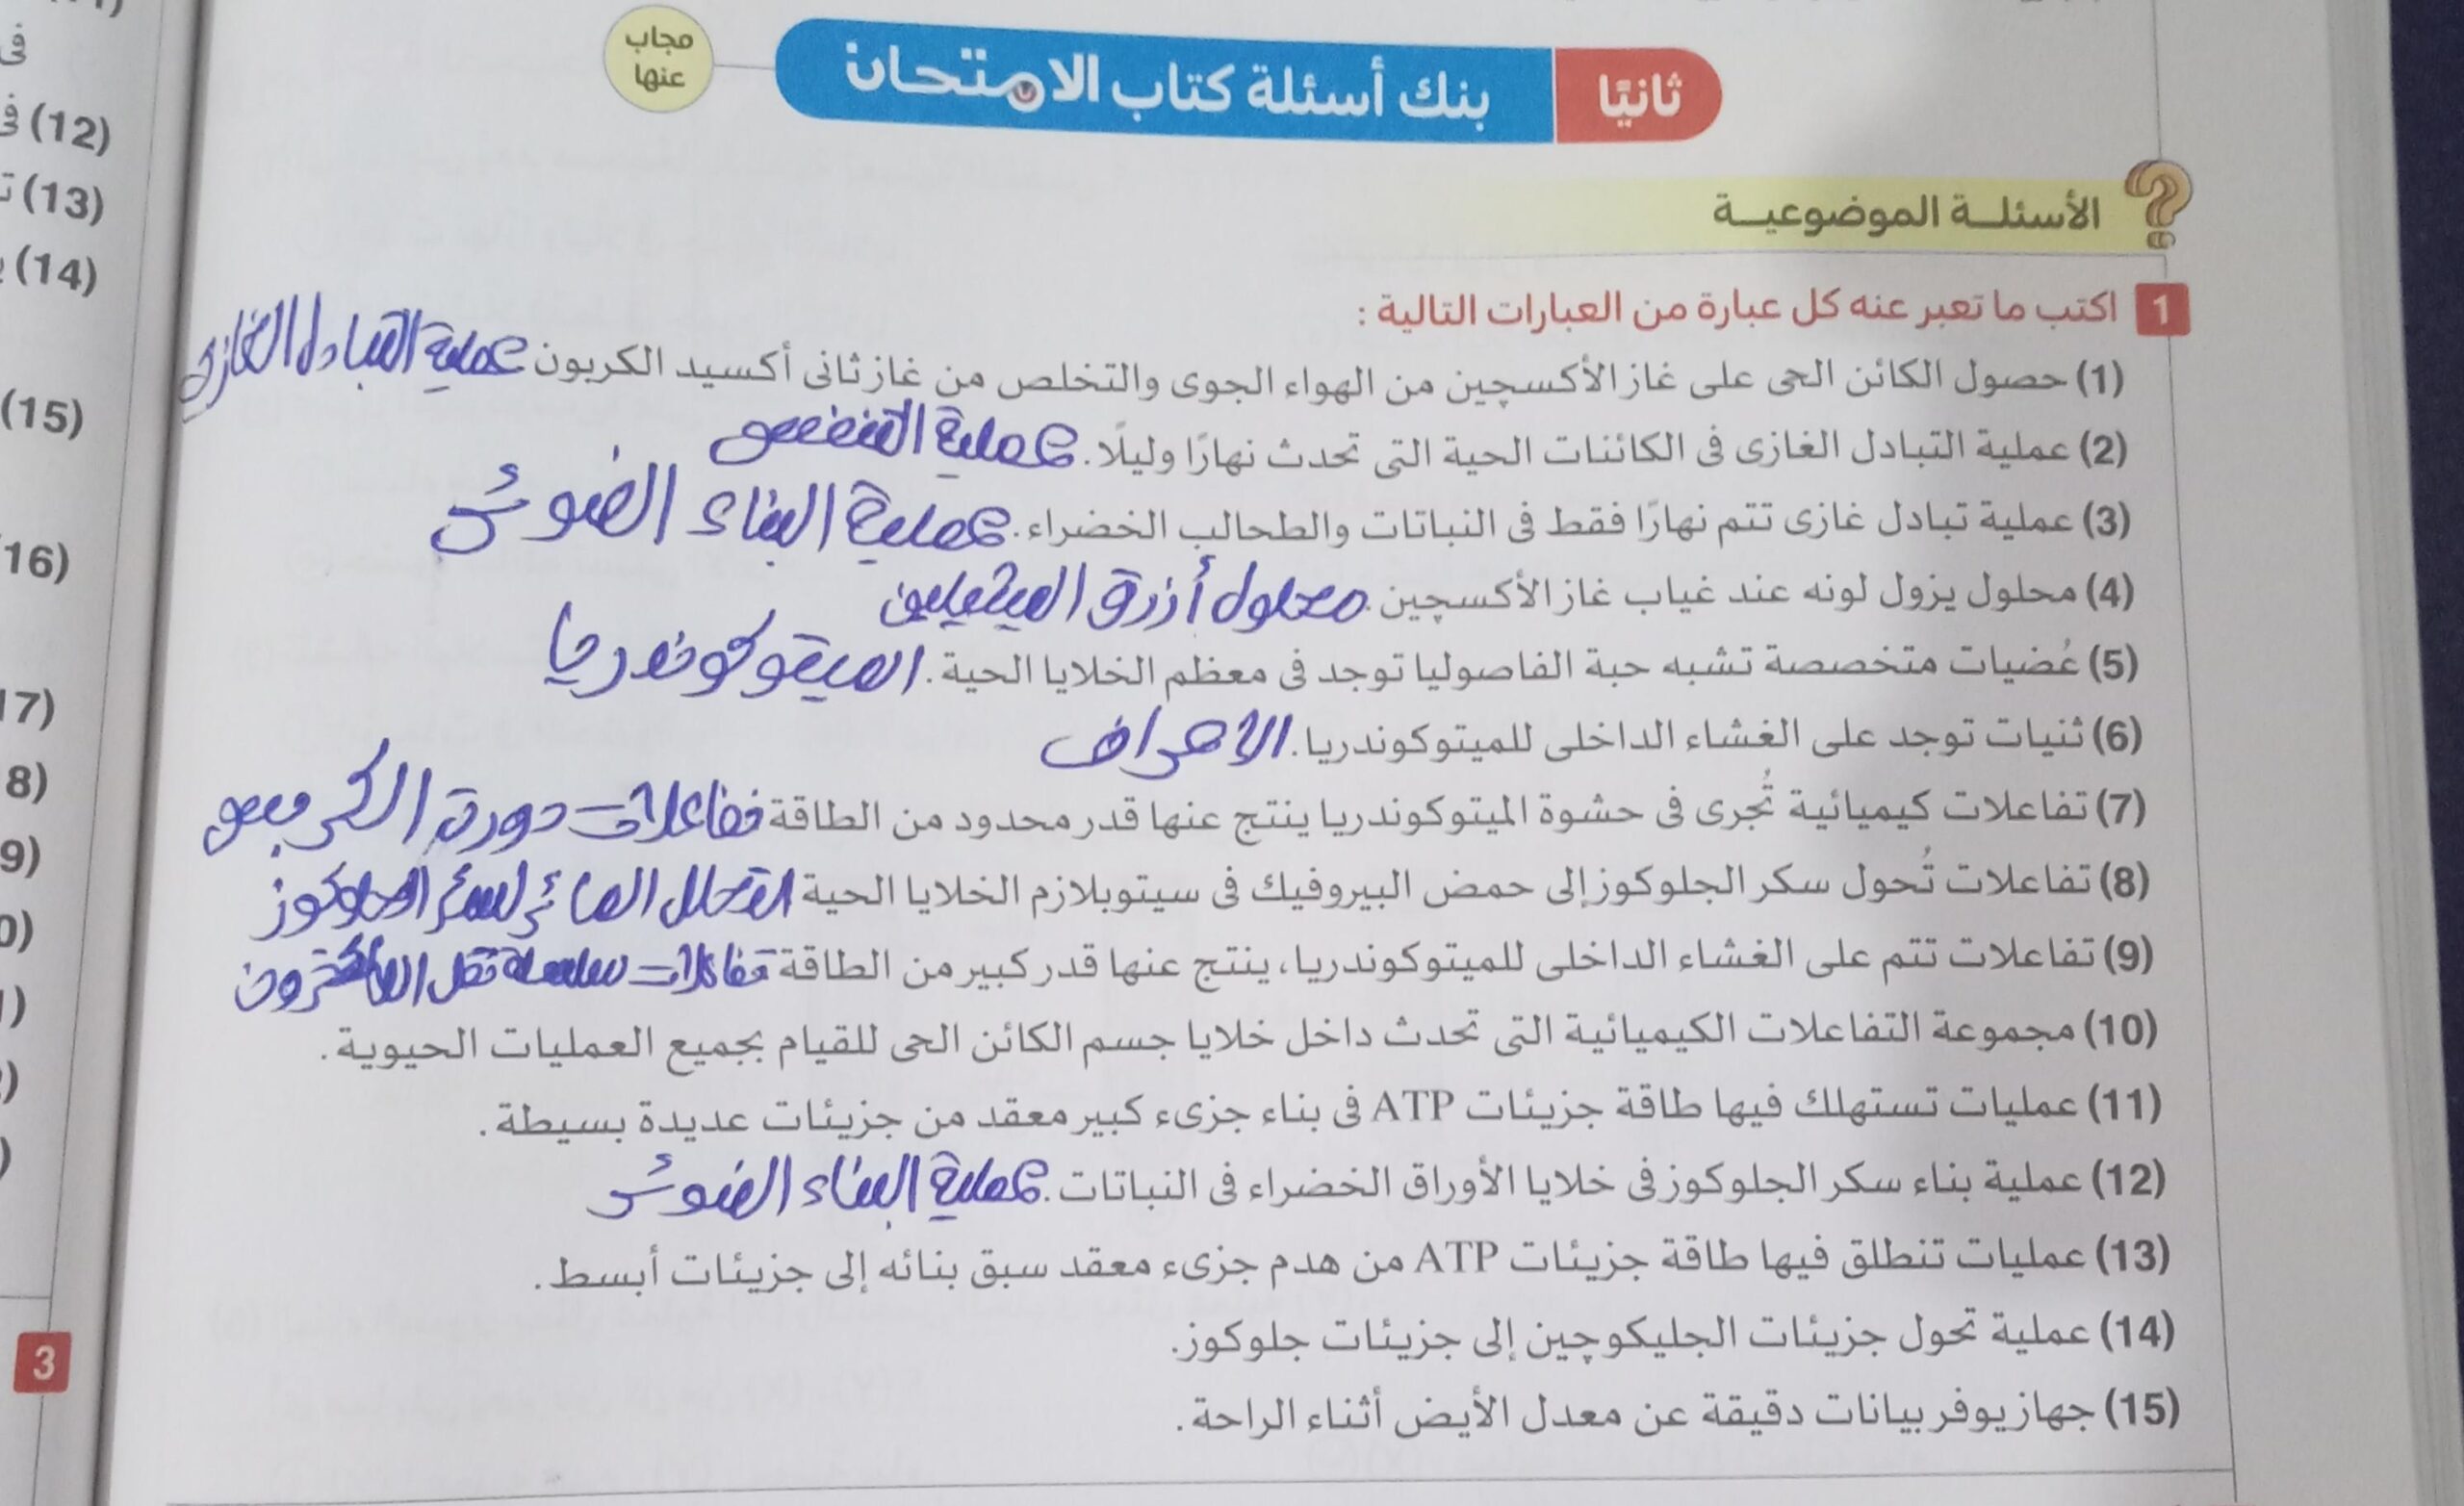 مجاب
عنها
ثانيًا
بنك أسئلة كتاب الامتحان
الأسئلة الموضوعية
1 اكتب ما تعبر عنه كل عبارة من العبارات التالية :
(1) حصول الكائن الحى على غاز الأكسچين من الهواء الجوى والتخلص من غاز ثانى أكسيد الكربون عملية التبادل الغازى
(2) عملية التبادل الغازى فى الكائنات الحية التى تحدث نهارًا وليلًا. عملية التنفس
(3) عملية تبادل غازى تتم نهارًا فقط فى النباتات والطحالب الخضراء. عملية البناء الضوئى
(4) محلول يزول لونه عند غياب غاز الأكسچين. محلول أزرق الميثيلين
(5) عُضيات متخصصة تشبه حبة الفاصوليا توجد فى معظم الخلايا الحية. الميتوكوندريا
(6) ثنيات توجد على الغشاء الداخلى للميتوكوندريا. الأعراف
(7) تفاعلات كيميائية تُجرى فى حشوة الميتوكوندريا ينتج عنها قدر محدود من الطاقة تفاعلات دورة الكربس
(8) تفاعلات تُحول سكر الجلوكوز إلى حمض البيروفيك فى سيتوبلازم الخلايا الحية التحلل المائى لسكر الجلوكوز
(9) تفاعلات تتم على الغشاء الداخلى للميتوكوندريا، ينتج عنها قدر كبير من الطاقة تفاعلات سلسلة نقل الإلكترون
(10) مجموعة التفاعلات الكيميائية التى تحدث داخل خلايا جسم الكائن الحى للقيام بجميع العمليات الحيوية.
(11) عمليات تستهلك فيها طاقة جزيئات ATP فى بناء جزىء كبير معقد من جزيئات عديدة بسيطة.
(12) عملية بناء سكر الجلوكوز فى خلايا الأوراق الخضراء فى النباتات. عملية البناء الضوئى
(13) عمليات تنطلق فيها طاقة جزيئات ATP من هدم جزىء معقد سبق بنائه إلى جزيئات أبسط.
(14) عملية تحول جزيئات الجليكوچين إلى جزيئات جلوكوز.
(15) جهاز يوفر بيانات دقيقة عن معدل الأيض أثناء الراحة.
فى
(12)
(13)
(14)
(15)
16)
17)
8)
9)
0)
3